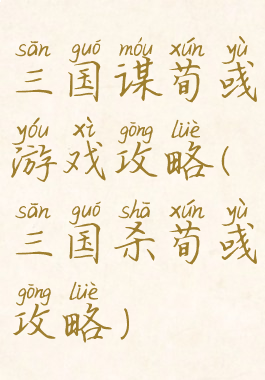 sān guó móu xún yù
三国谋荀彧
yóu xì gōng lüè
游戏攻略(
sān guó shā xún yù
三国杀荀彧
gōng lüè
攻略)